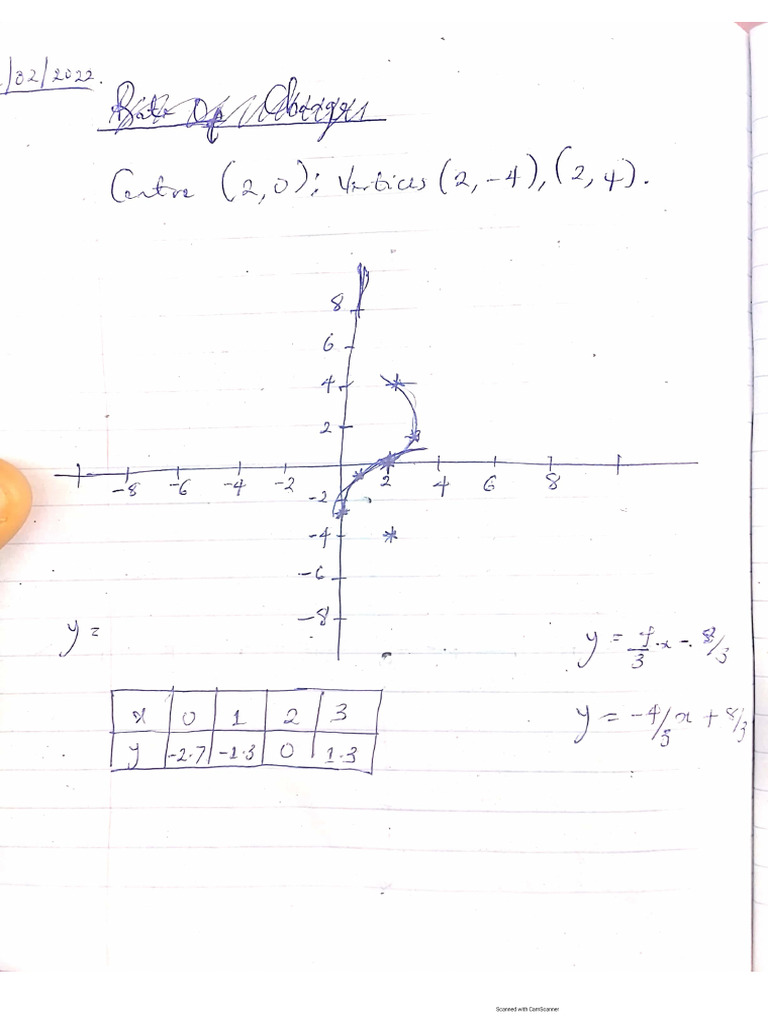 /02/2022.
Rate of Change
Centre (2,0); Vertices (2,-4), (2, 4).
8
6
4
2
-8 -6 -4 -2 2 4 6 8
-2
-4
-6
-8
y =
y = 4/3 x - 8/3
y = -4/3 x + 8/3
x 0 1 2 3
y -2.7 -1.3 0 1.3
Scanned with CamScanner